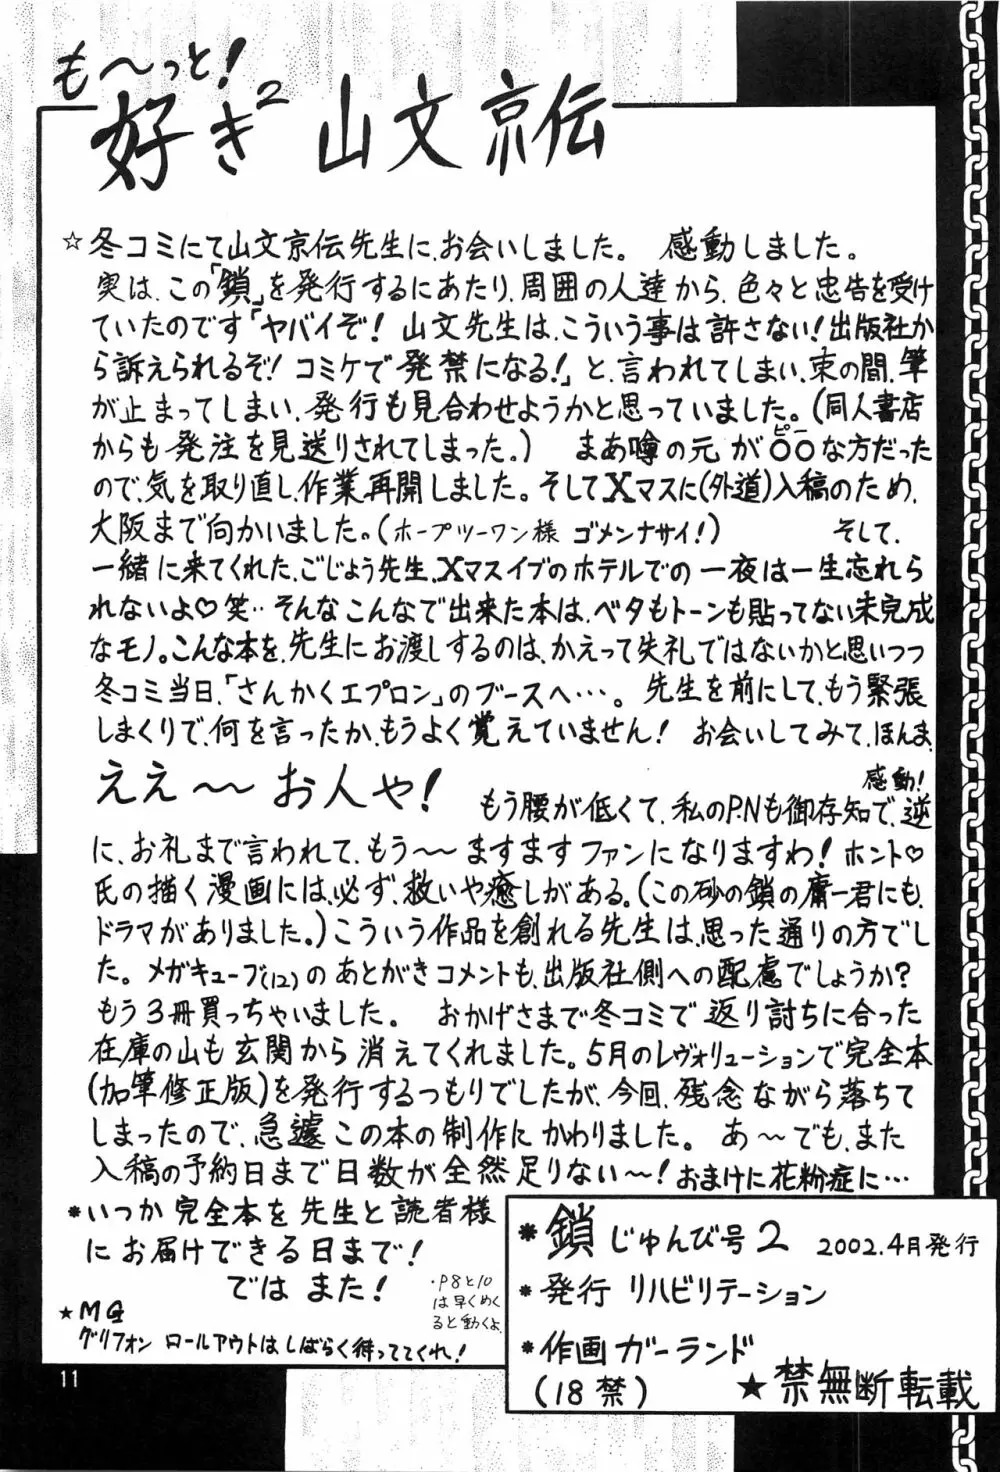 も〜っと!
好き² 山文京伝
☆冬コミにて山文京伝先生に、お会いしました。 感動しました。
実は、この「鎖」を発行するにあたり、周囲の人達から、色々と忠告を受け
ていたのです「ヤバイぞ! 山文先生は、こういう事は許さない!出版社か
ら訴えられるぞ! コミケで発禁になる!」と、言われてしまい、束の間、筆
が止まってしまい、発行も見合わせようかと思っていました。(同人書店
からも発注を見送りされてしまった。) まあ噂の元が○○な方だった
ピー
ので、気を取り直し、作業再開しました。そしてXマスに(外道)入稿のため、
大阪まで向かいました。(ホープツーワン様 ゴメンナサイ!) そして、
一緒に来てくれた、ごじょう先生、Xマスイブのホテルでの一夜は一生忘れら
れないよ♡笑‥そんなこんなで出来た本は、ベタもトーンも貼ってない未完成
なモノ。こんな本を、先生にお渡しするのは、かえって失礼ではないかと思いつつ
冬コミ当日、「さんかくエプロン」のブースへ…。先生を前にして、もう緊張
しまくりで、何を言ったか、もうよく覚えていません! お会いしてみて、ほんま、
ええ〜〜お人や!
感動!
もう腰が低くて、私のP.Nも御存知で、逆
に、お礼まで言われて、もう〜〜ますますファンになりますわ!ホント♡
氏の描く漫画には、必ず、救いや癒しがある。(この砂の鎖の庸一君にも、
ドラマがありました。)こういう作品を創れる先生は、思った通りの方でし
た。メガキューブ(12)のあとがきコメントも、出版社側への配慮でしょうか?
もう3冊買っちゃいました。 おかげさまで冬コミで返り討ちに合った
在庫の山も玄関から消えてくれました。5月のレヴォリューションで完全本
(加筆修正版)を発行するつもりでしたが、今回、残念ながら落ちて
しまったので、急遽この本の制作にかわりました。 あ〜でも、また
入稿の予約日まで日数が全然足りない〜!おまけに花粉症に…
*いつか完全本を先生と読者様
にお届けできる日まで!
ではまた!
・P8と10
は早くめく
ると動くよ
★MG
グリフォン ロールアウトはしばらく待っててくれ!
*鎖じゅんび号2 2002.4月発行
*発行 リハビリテーション
*作画ガーランド
(18禁) ★禁無断転載
11